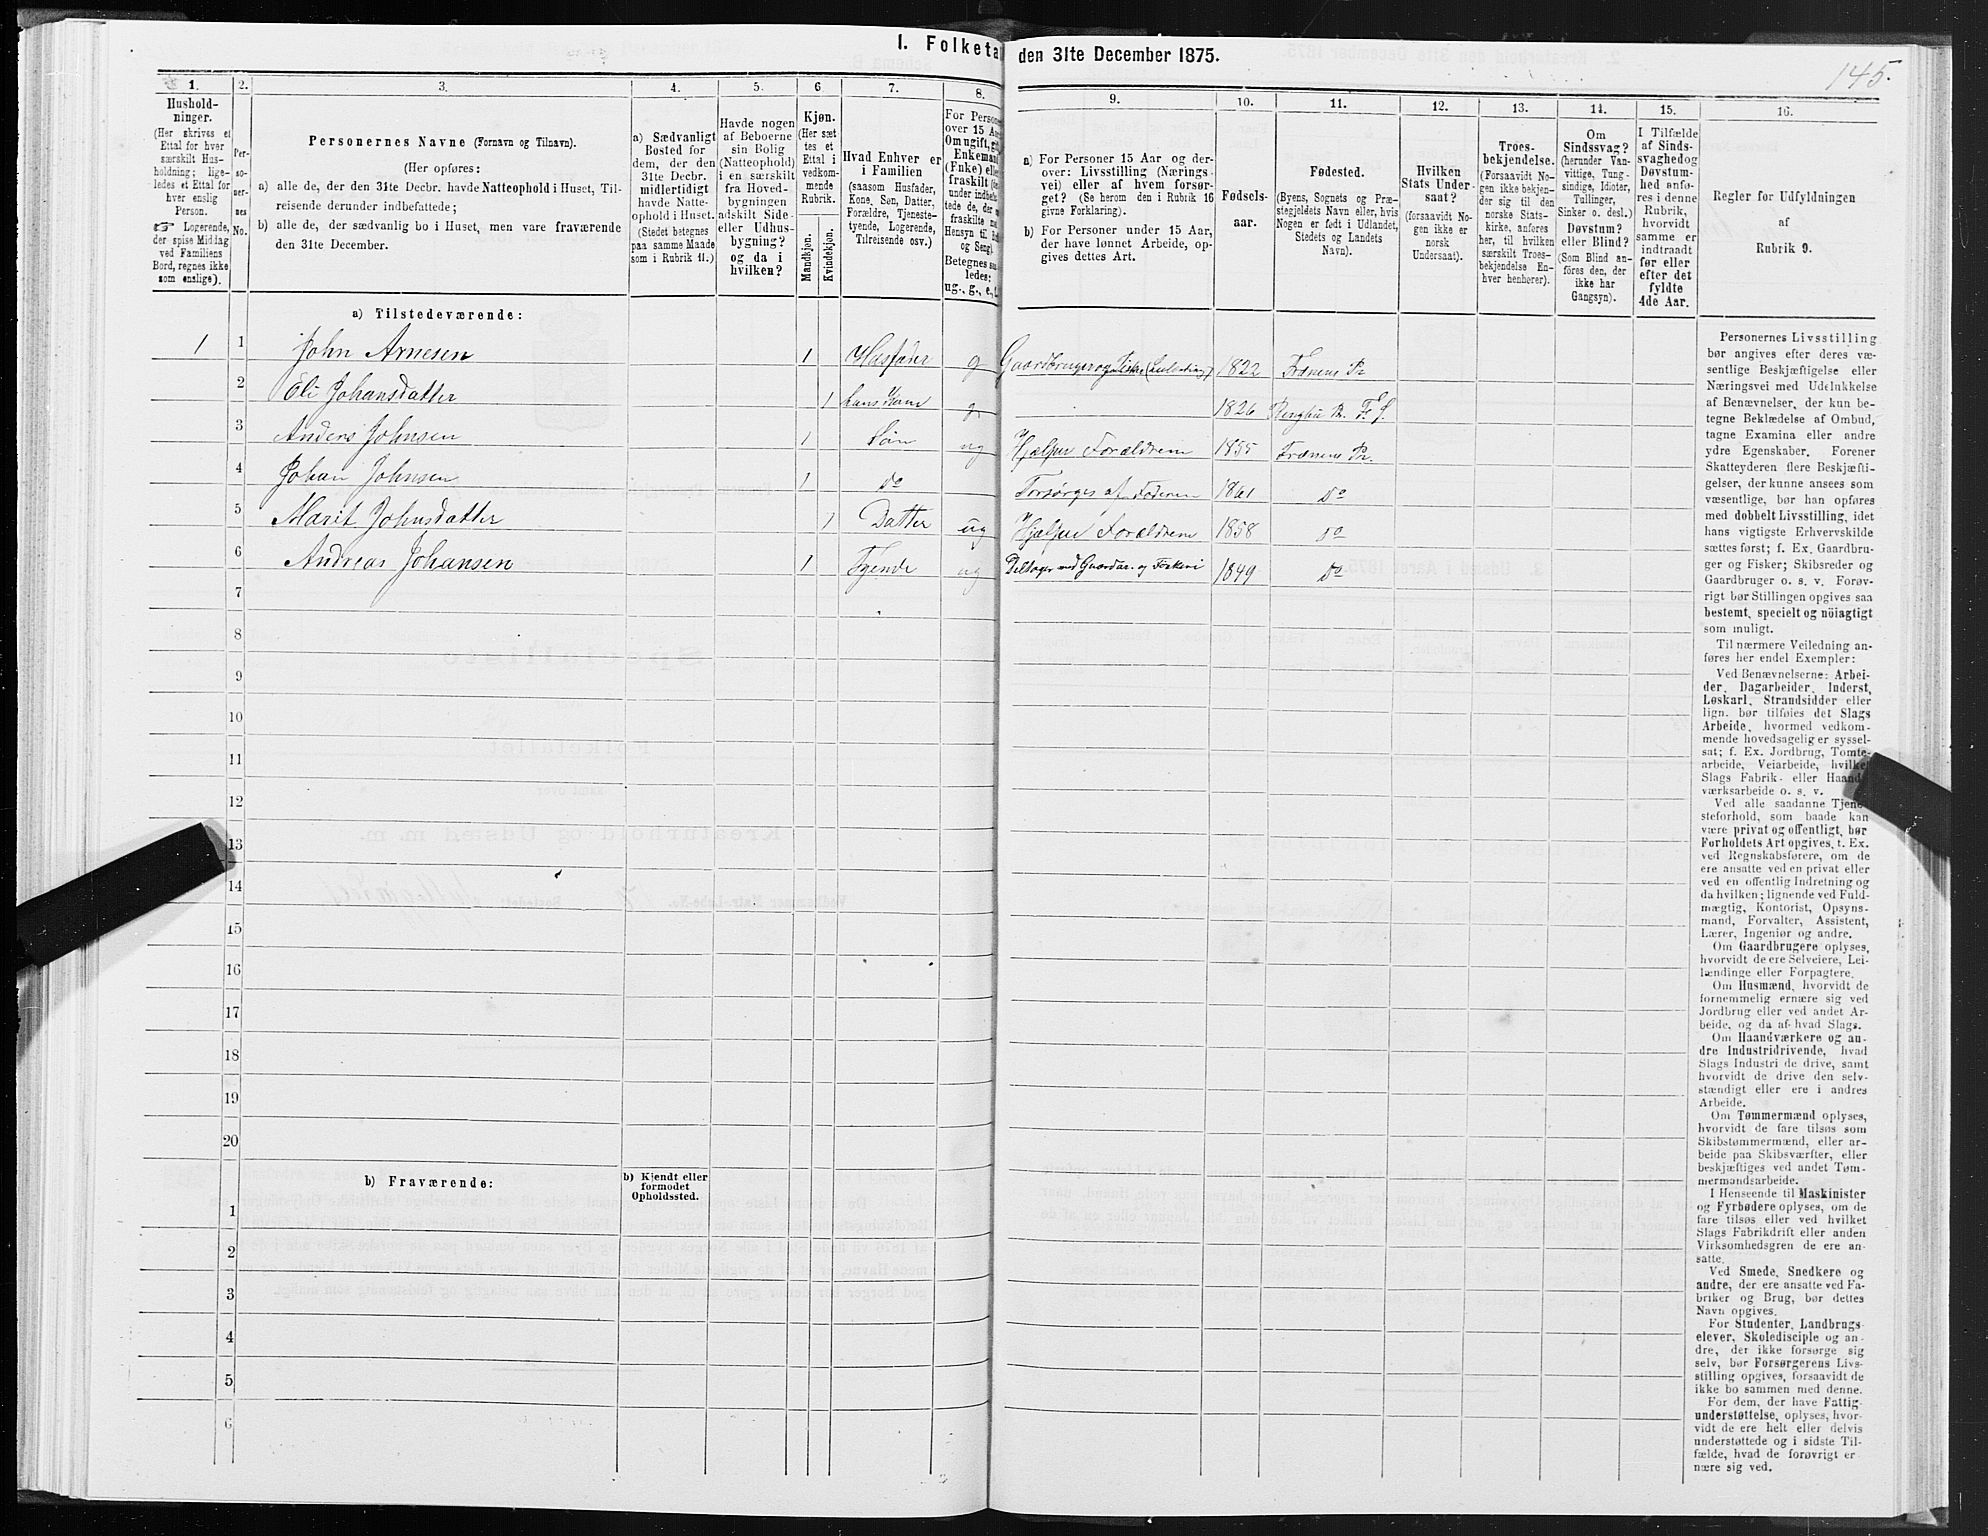 I. Folketal
den 31te December 1875.
145.
1.
2.
3.
4.
5.
6
7.
8.
9.
10.
11.
12.
13.
14.
15.
16.
Hushold-
ninger.
(Her skrives et
Ettal for hver
særskilt Hus-
holdning; lige-
ledes et Ettal for
hver enslig
Person.
☞ Logerende,
der spise Middag
ved Familiens
Bord, regnes ikke
som enslige).
Per-
so-
ner-
nes
No.
Personernes Navne (Fornavn og Tilnavn).
(Her opføres:
a) alle de, der den 31te Decbr. havde Natteophold i Huset, Til-
reisende derunder indbefattede;
b) alle de, der sædvanlig bo i Huset, men vare fraværende
den 31te December.
a) Sædvanligt
Bosted for
dem, der den
31te Decbr.
midlertidigt
havde Natte-
ophold i Huset.
(Stedet betegnes
paa samme Maade
som i Rubrik 11.)
Havde nogen
af Beboerne
sin Bolig
(Natteophold)
i en særskilt
fra Hoved-
bygningen
adskilt Side-
eller Udhus-
bygning?
og da i
hvilken?
Kjøn.
(Her sæt
tes et
Ettal i
vedkom-
mende
Rubrik.
Mandkjøn.
Kvindekjøn.
Hvad Enhver er
i Familien
(saasom Husfader,
Kone, Søn, Datter,
Forældre, Tjeneste-
tyende, Logerende,
Tilreisende osv.)
For Person
over 15 Aar
Om ugift, gi
Enkemand
(Enke) eller
fraskilt (
under indbefat
tede de, der
fraskilte
Hensyn til
og Seng).
Betegnes saa
ledes:
ug., g., e.,
a) For Personer 15 Aar og der-
over: Livsstilling (Nærings-
vei) eller af hvem forsør-
get? (Se herom den i Rubrik 16
givne Forklaring).
b) For Personer under 15 Aar,
der have lønnet Arbeide, op-
gives dettes Art.
Fødsels-
aar.
Fødested.
(Byens, Sognets og Præ-
stegjeldets Navn eller, hvis
Nogen er født i Udlandet,
Stedets og Landets
Navn).
Hvilken
Stats Under-
saat?
(forsaavidt No-
gen ikke er
norsk
Undersaat).
Troes-
bekjendelse.
(Forsaavidt No-
gen ikke bekjen-
der sig til den
norske Stats-
kirke, anføres
her, til hvilken
særskilt Troes-
bekjendelse En-
hver henhører).
Om
Sindssvag?
(herunder Van-
vittige, Tung-
sindige, Idioter,
Tullinger,
Sinker o. desl.)
Døvstum?
eller Blind?
(Som Blind an-
føres den, der
ikke har
Gangsyn).
I Tilfælde
af Sinds-
svaghedog
Døvstum-
hed anfø-
res i denne
Rubrik,
hvorvidt
samme er
indtraadt
før eller
efter det
fyldte
4de Aar.
Regler for Udfyldningen
af
Rubrik 9.
a) Tilstedeværende:
1 1 John Arnesen 1 Husfader g Gaardbruger og Fisker 1822 Frænens Pr
2 Eli Johansdatter 1 hans Kone g 1826 Pr.
3 Anders Johnsen 1 Søn ug Hjælper Forældrene 1855 Frænens Pr.
4 Johan Johnsen 1 do Forsørges af Faderen 1861 do
5 Marit Johnsdatter 1 Datter ug Hjælper Forældrene 1858 do
6 Andreas Johansen 1 Tyende ug Deltager ved Gaardar. og Fiskeri 1849 do
7
8
9
10
11
12
13
14
15
16
17
18
19
20
b) Fraværende:
b) Kjendt eller
formodet
Opholdssted.
1
2
3
4
5
6
Personernes Livsstilling
bør angives efter deres væ-
sentlige Beskjæftigelse eller
Næringsvei med Udelukkelse
af Benævnelser, der kun be-
tegne Beklædelse af Ombud,
tagne Examina eller andre
ydre Egenskaber. Forener
Skatteyderen flere Beskjæfti-
gelser, der kunne ansees som
væsentlige, bør han opføres
med dobbelt Livsstilling, idet
hans vigtigste Erhvervskilde
sættes først; f. Ex. Gaardbru-
ger og Fisker; Skibsreder og
Gaardbruger o. s. v. Forøv-
rigt bør Stillingen opgives saa
bestemt, specielt og nöiagtigt
som muligt.
Til nærmere Veiledning an-
føres her endel Exempler:
Ved Benævnelserne: Arbei-
der, Dagarbeider, Inderst,
Løskarl, Strandsidder eller
lign. bør tilføies det Slags
Arbeide, hvormed vedkom-
mende hovedsagelig er syssel-
sat; f. Ex. Jordbrug, Tomte-
arbeide, Veiarbeide, hvilket
Slags Fabrik- eller Haand-
værksarbeide o. s. v.
Ved alle saadanne Tjene-
steforhold, som baade kan
være privat og offentligt, bør
Forholdets Art opgives, t. Ex.
ved Regnskabsførere, om de
ere ansatte ved en privat eller
ved en offentlig Indretning og
da hvilken; lignende ved Fuld-
mægtig, Kontorist, Opsyns-
mand, Forvalter, Assistent,
Lærer, Ingeniør og andre.
Om Gaardbrugere oplyses,
hvorvidt de ere Selveiere, Lei-
lændinge eller Forpagtere.
Om Husmænd, hvorvidt de
fornemmelig ernære sig ved
Jordbrug eller ved andet Ar-
beide, og da af hvad Slags.
Om Haandværkere og an-
dre Industridrivende, hvad
Slags Industri de drive, samt
hvorvidt de drive den selv-
stændigt eller ere i andres
Arbeide.
Om Tømmermænd oplyses,
hvorvidt de fare tilsøs som
Skibstømmermænd, eller ar-
beide paa Skibsværfter, eller
beskjæftiges ved andet Tøm-
mermandsarbeide.
I Henseende til Maskinister
og Fyrbødere oplyses, om de
fare tilsøs eller ved hvilket
Slags Fabrikdrift eller anden
Virksomhedsgren de ere an-
satte.
Ved Smede, Snedkere og
andre, der ere ansatte ved Fa-
briker og Brug, bør dettes
Navn opgives.
For Studenter, Landbrugs-
elever, Skoledisciple og an-
dre, der ikke forsørge sig
selv, bør Forsørgerens Livs-
stilling opgives, forsaavidt de
ikke bo sammen med denne.
For dem, der have Fattig-
understøttelse, oplyses, hvor-
vidt de ere helt eller delvis
understøttede og i sidste Til-
fælde, hvad de forøvrigt er-
nære sig ved.